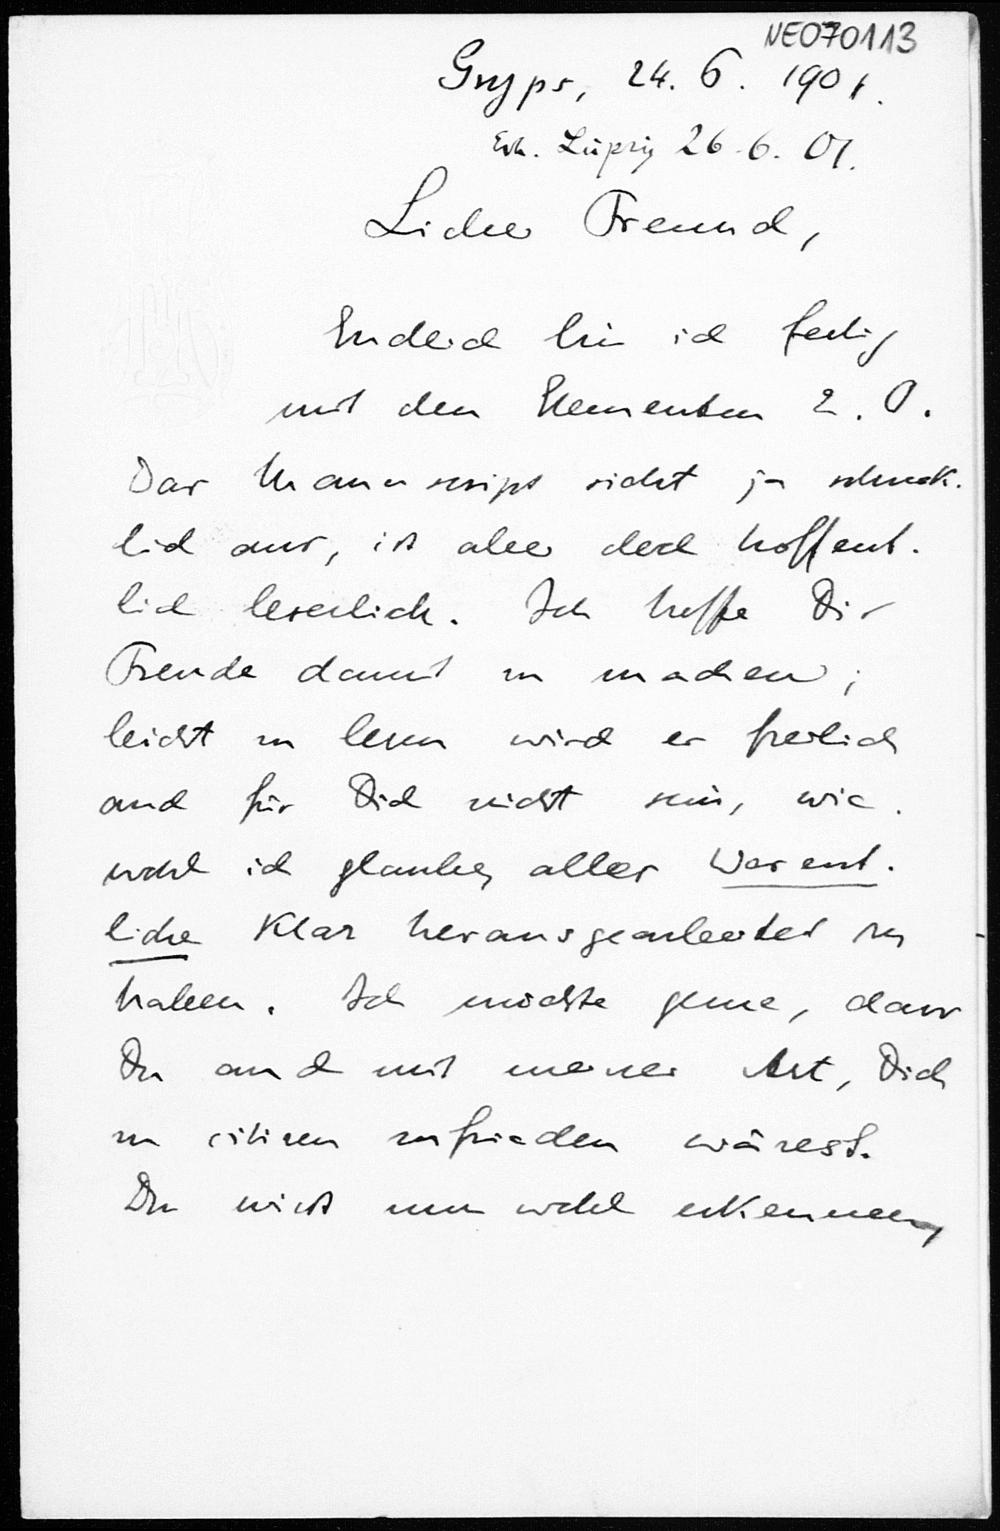 NE070113
Gryps, 24. 6. 1901.
Erh. Leipzig 26.6.01.
Lieber Freund,
Endlich bin ich fertig
mit den Elementen 2. O.
Das Manuscript sieht ja schreck-
lich aus, ist aber doch hoffent-
lich leserlich. Ich hoffe Dir
Freude damit zu machen;
leicht zu lesen wird es freilich
auch für Dich nicht sein, wie-
wohl ich glaube, alles Wesent-
liche klar herausgearbeitet zu
haben. Ich möchte gerne, dass
Du auch mit meiner Art, Dich
zu citiren zufrieden wärest.
Du wirst nun wohl erkennen,